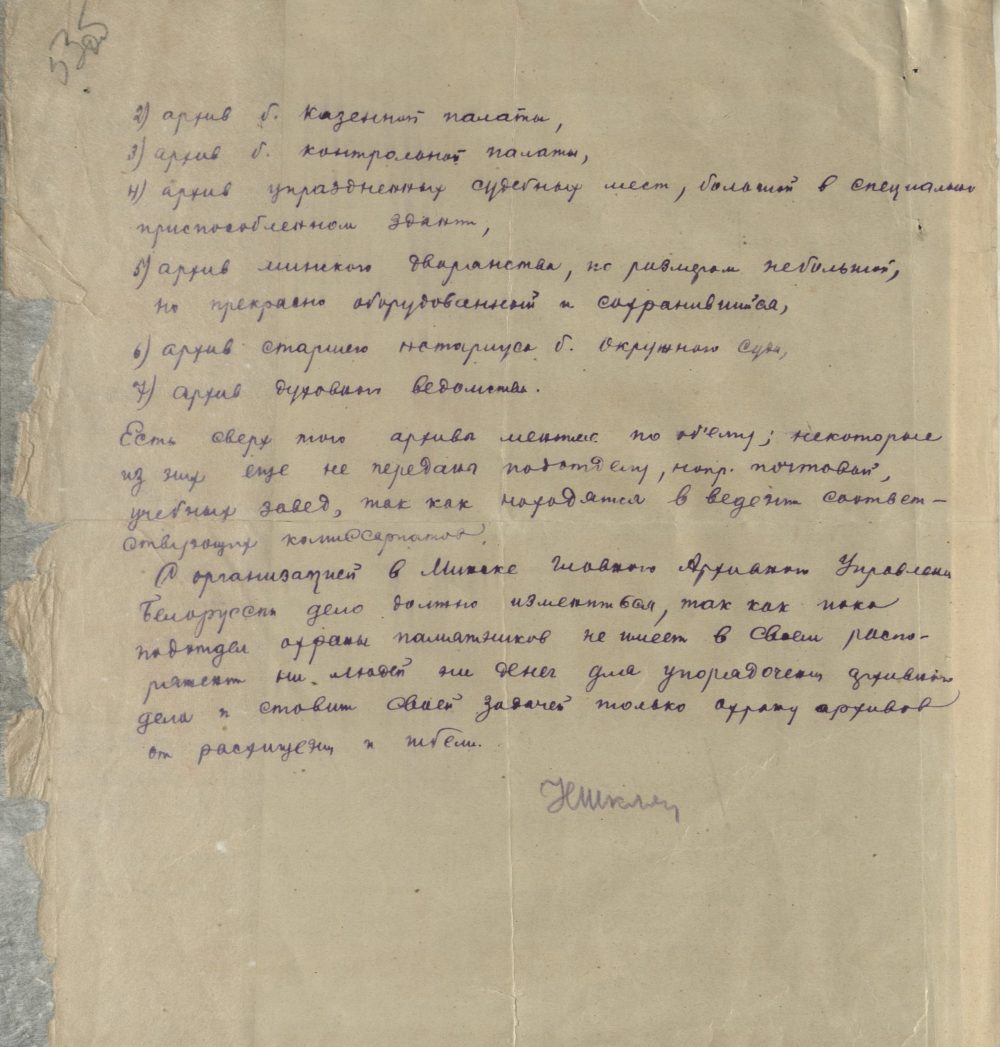 535
2) архив б. казенной палаты,
3) архив б. контрольной палаты,
4) архив упраздненных судебных мест, большой в специально
приспособленном здании,
5) архив минского дворянства, по размерам небольшой,
но прекрасно оборудованный и сохранившийся,
6) архив старшего нотариуса б. окружного суда,
7) архив духовного ведомства.
Есть сверх того архивы меньшие по об'ему; некоторые
из них еще не переданы подотделу, напр. почтовой,
учебных завед, так как находятся в ведении соответ-
ствующих комиссариатов.
С организацией в Минске Главного Архивного Управления
Белоруссии дело должно измениться, так как пока
подотдел охраны памятников не имеет в своем распо-
ряжении ни людей ни денег для упорядочения архивного
дела и ставит своей задачей только охрану архивов
от расхищения и гибели.